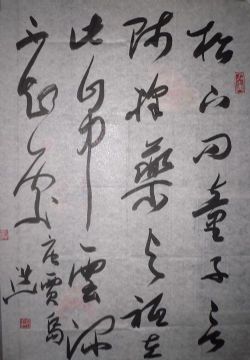 松下問童子言
師採藥去祇在
此山中雲深
不知處唐賈島